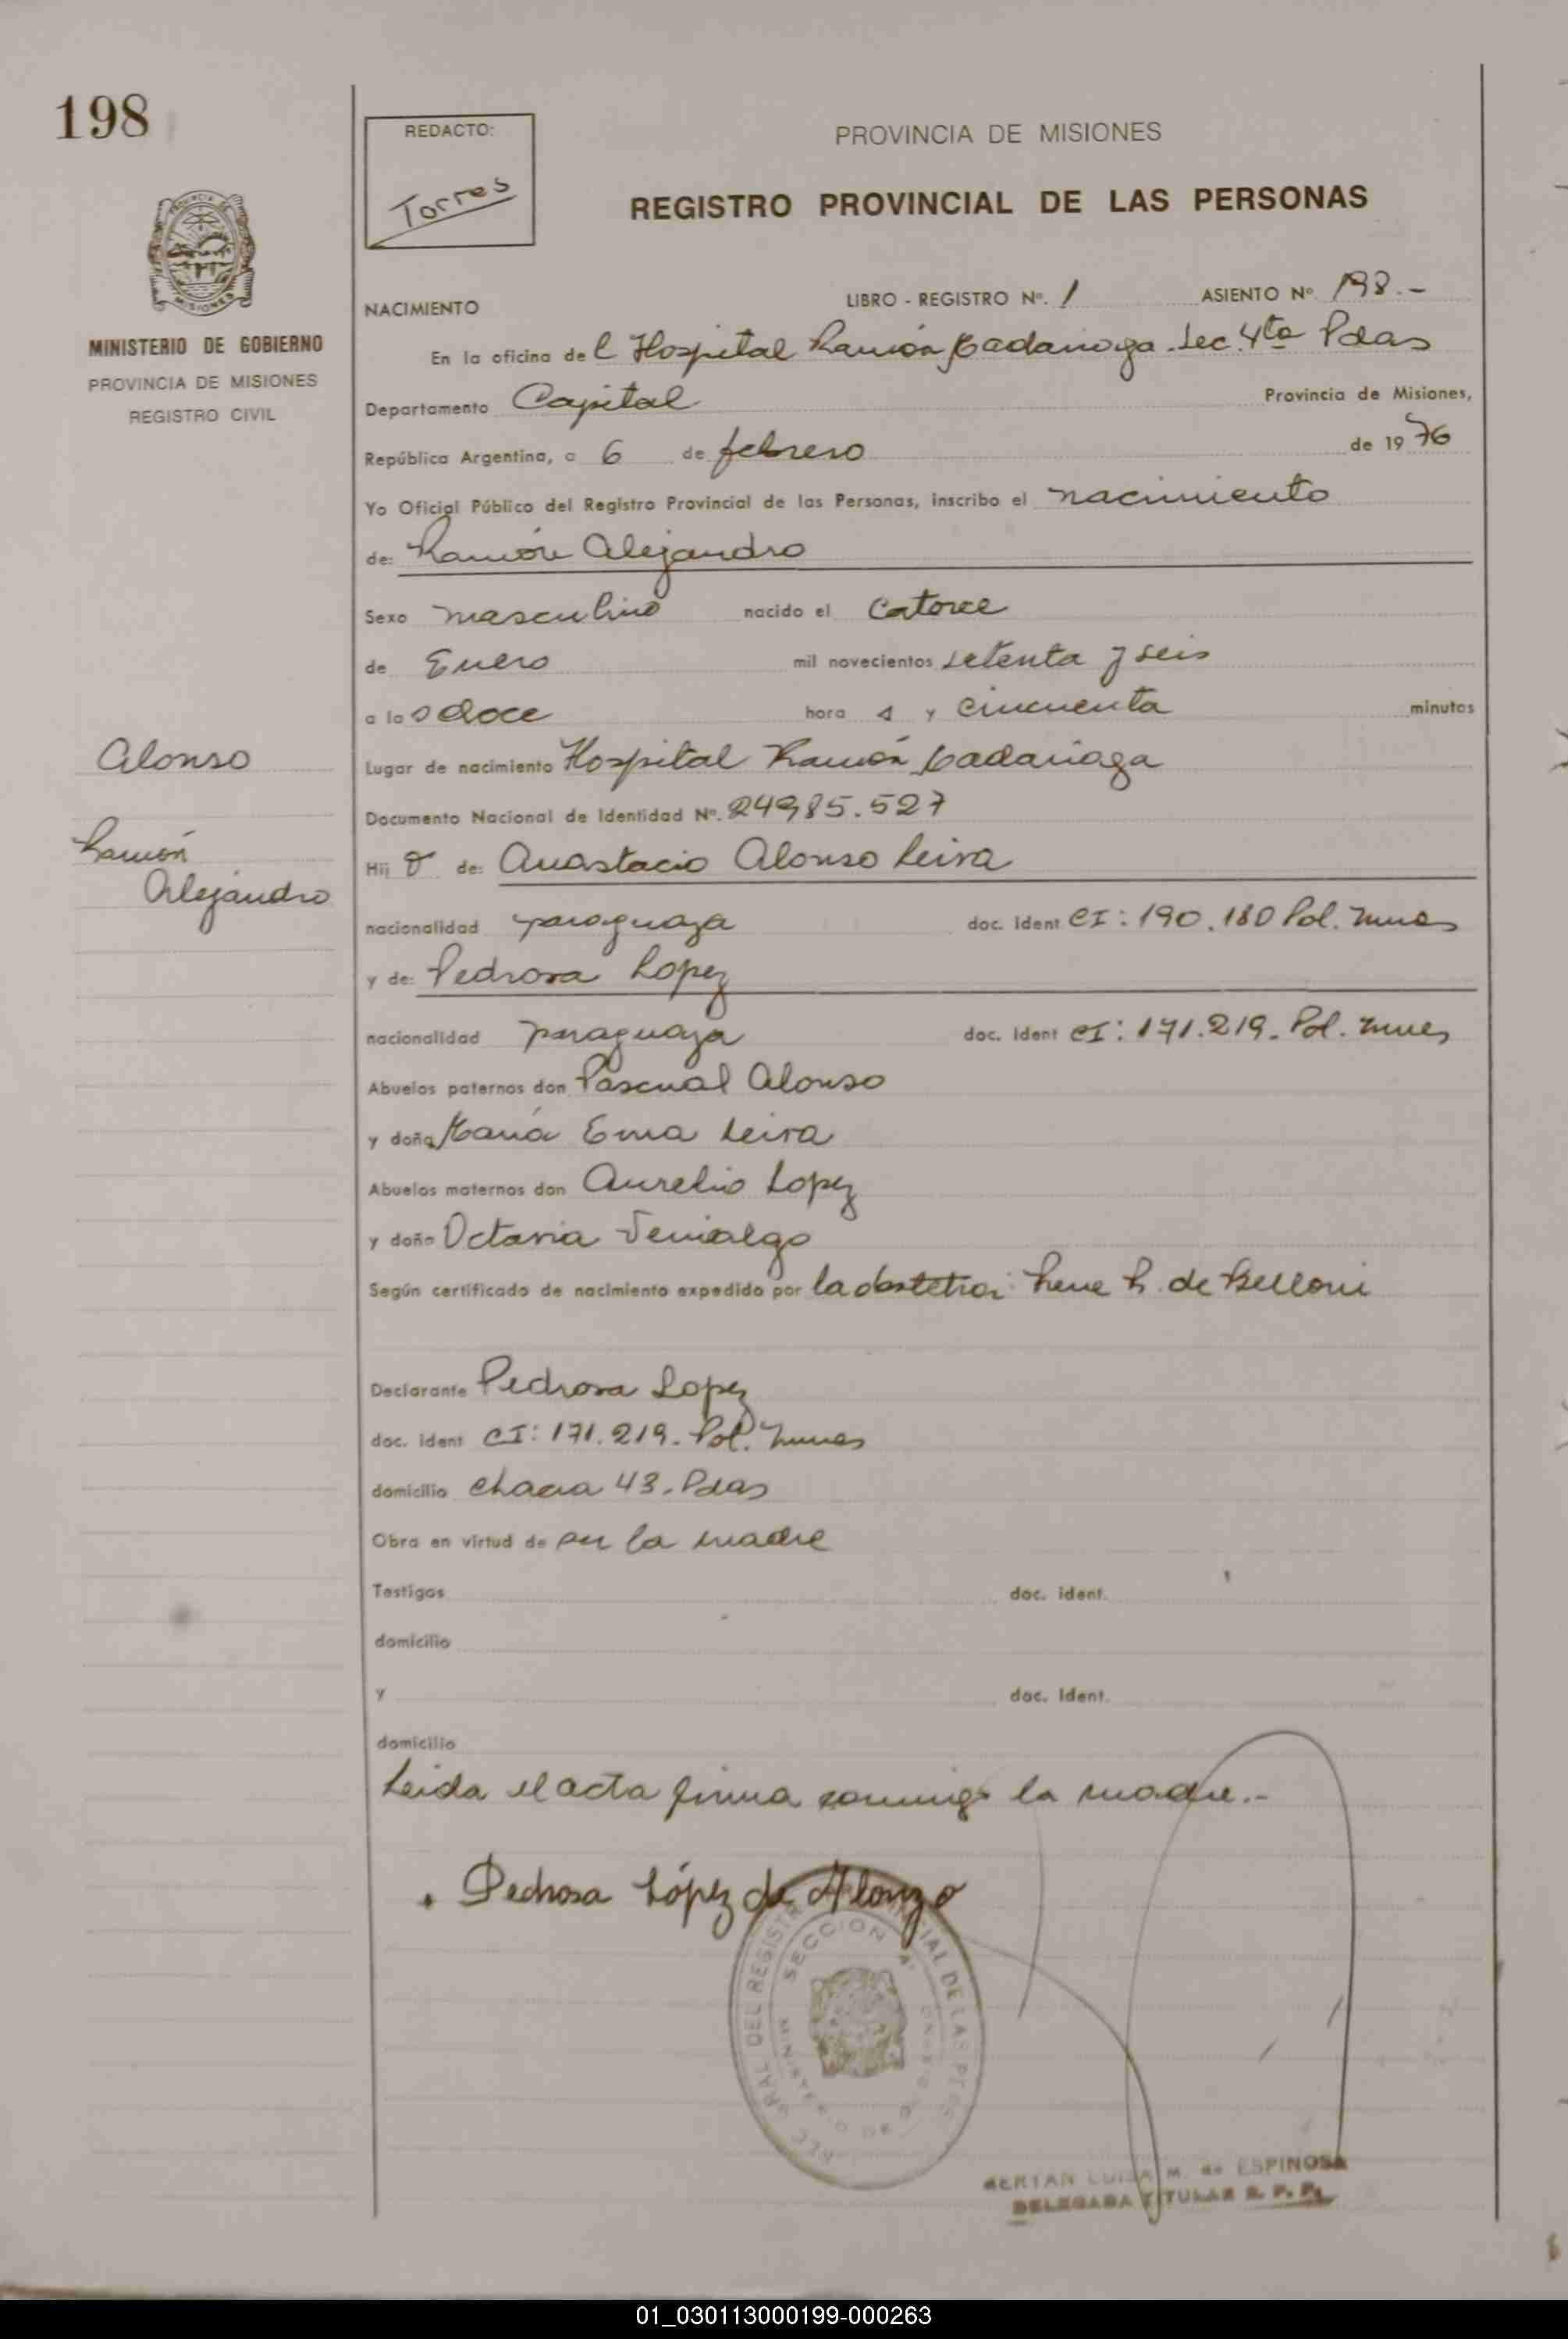 198
REDACTO:
Torres
PROVINCIA DE MISIONES
REGISTRO PROVINCIAL DE LAS PERSONAS
MINISTERIO DE GOBIERNO
PROVINCIA DE MISIONES
REGISTRO CIVIL
NACIMIENTO LIBRO - REGISTRO Nº. 1 ASIENTO Nº 198.-
En la oficina del Hospital Ramón Madariaga. Sec. 4ta Pdas
Departamento Capital Provincia de Misiones,
República Argentina, a 6 de febrero de 1976
Yo Oficial Público del Registro Provincial de las Personas, inscribo el nacimiento
de: Ramón Alejandro
Sexo masculino nacido el catorce
de Enero mil novecientos setenta y seis
a las doce hora s y cincuenta minutos
Alonso
Lugar de nacimiento Hospital Ramón Madariaga
Documento Nacional de Identidad Nº. 24985.527
Ramón
Alejandro
Hijo de: Anastacio Alonso Leiva
nacionalidad paraguaya doc. ident CI: 190.180 Pol. Mnes
y de: Pedrosa Lopez
nacionalidad paraguaya doc. ident CI: 171.219. Pol. Mnes
Abuelos paternos don Pascual Alonso
y doña María Ema Leiva
Abuelos maternos don Aurelio Lopez
y doña Octavia Venialgo
Según certificado de nacimiento expedido por la obstetra: Irene R. de Belloni
Declarante Pedrosa Lopez
doc. ident CI: 171.219. Pol. Mnes
domicilio chacra 43. Pdas
Obra en virtud de ser la madre
Testigos doc. ident.
domicilio
y doc. ident.
domicilio
Leida el acta firma conmigo la madre.-
Pedrosa López de Alonzo
SECCION 4ª
DEL REGISTRO DE LAS
MINISTERIO DE
LUISA M. de ESPINOSA
DELEGADA TITULAR R. P. P.
01_030113000199-000263